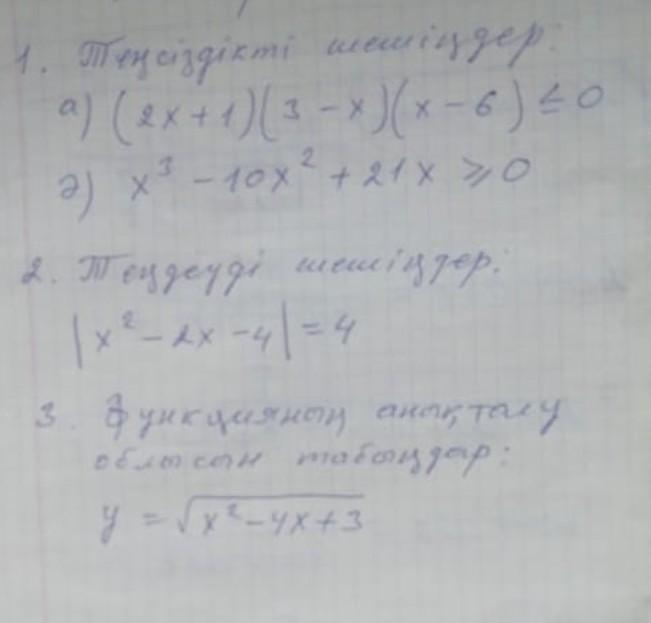 1. Теңсіздікті шешіңдер:
а) (2x+1)(3-x)(x-6) ≤ 0
ә) x³ - 10x² + 21x ≥ 0
2. Теңдеуді шешіңдер:
|x² - 2x - 4| = 4
3. Функцияның анықталу
облысын табыңдар:
y = √(x² - 4x + 3)